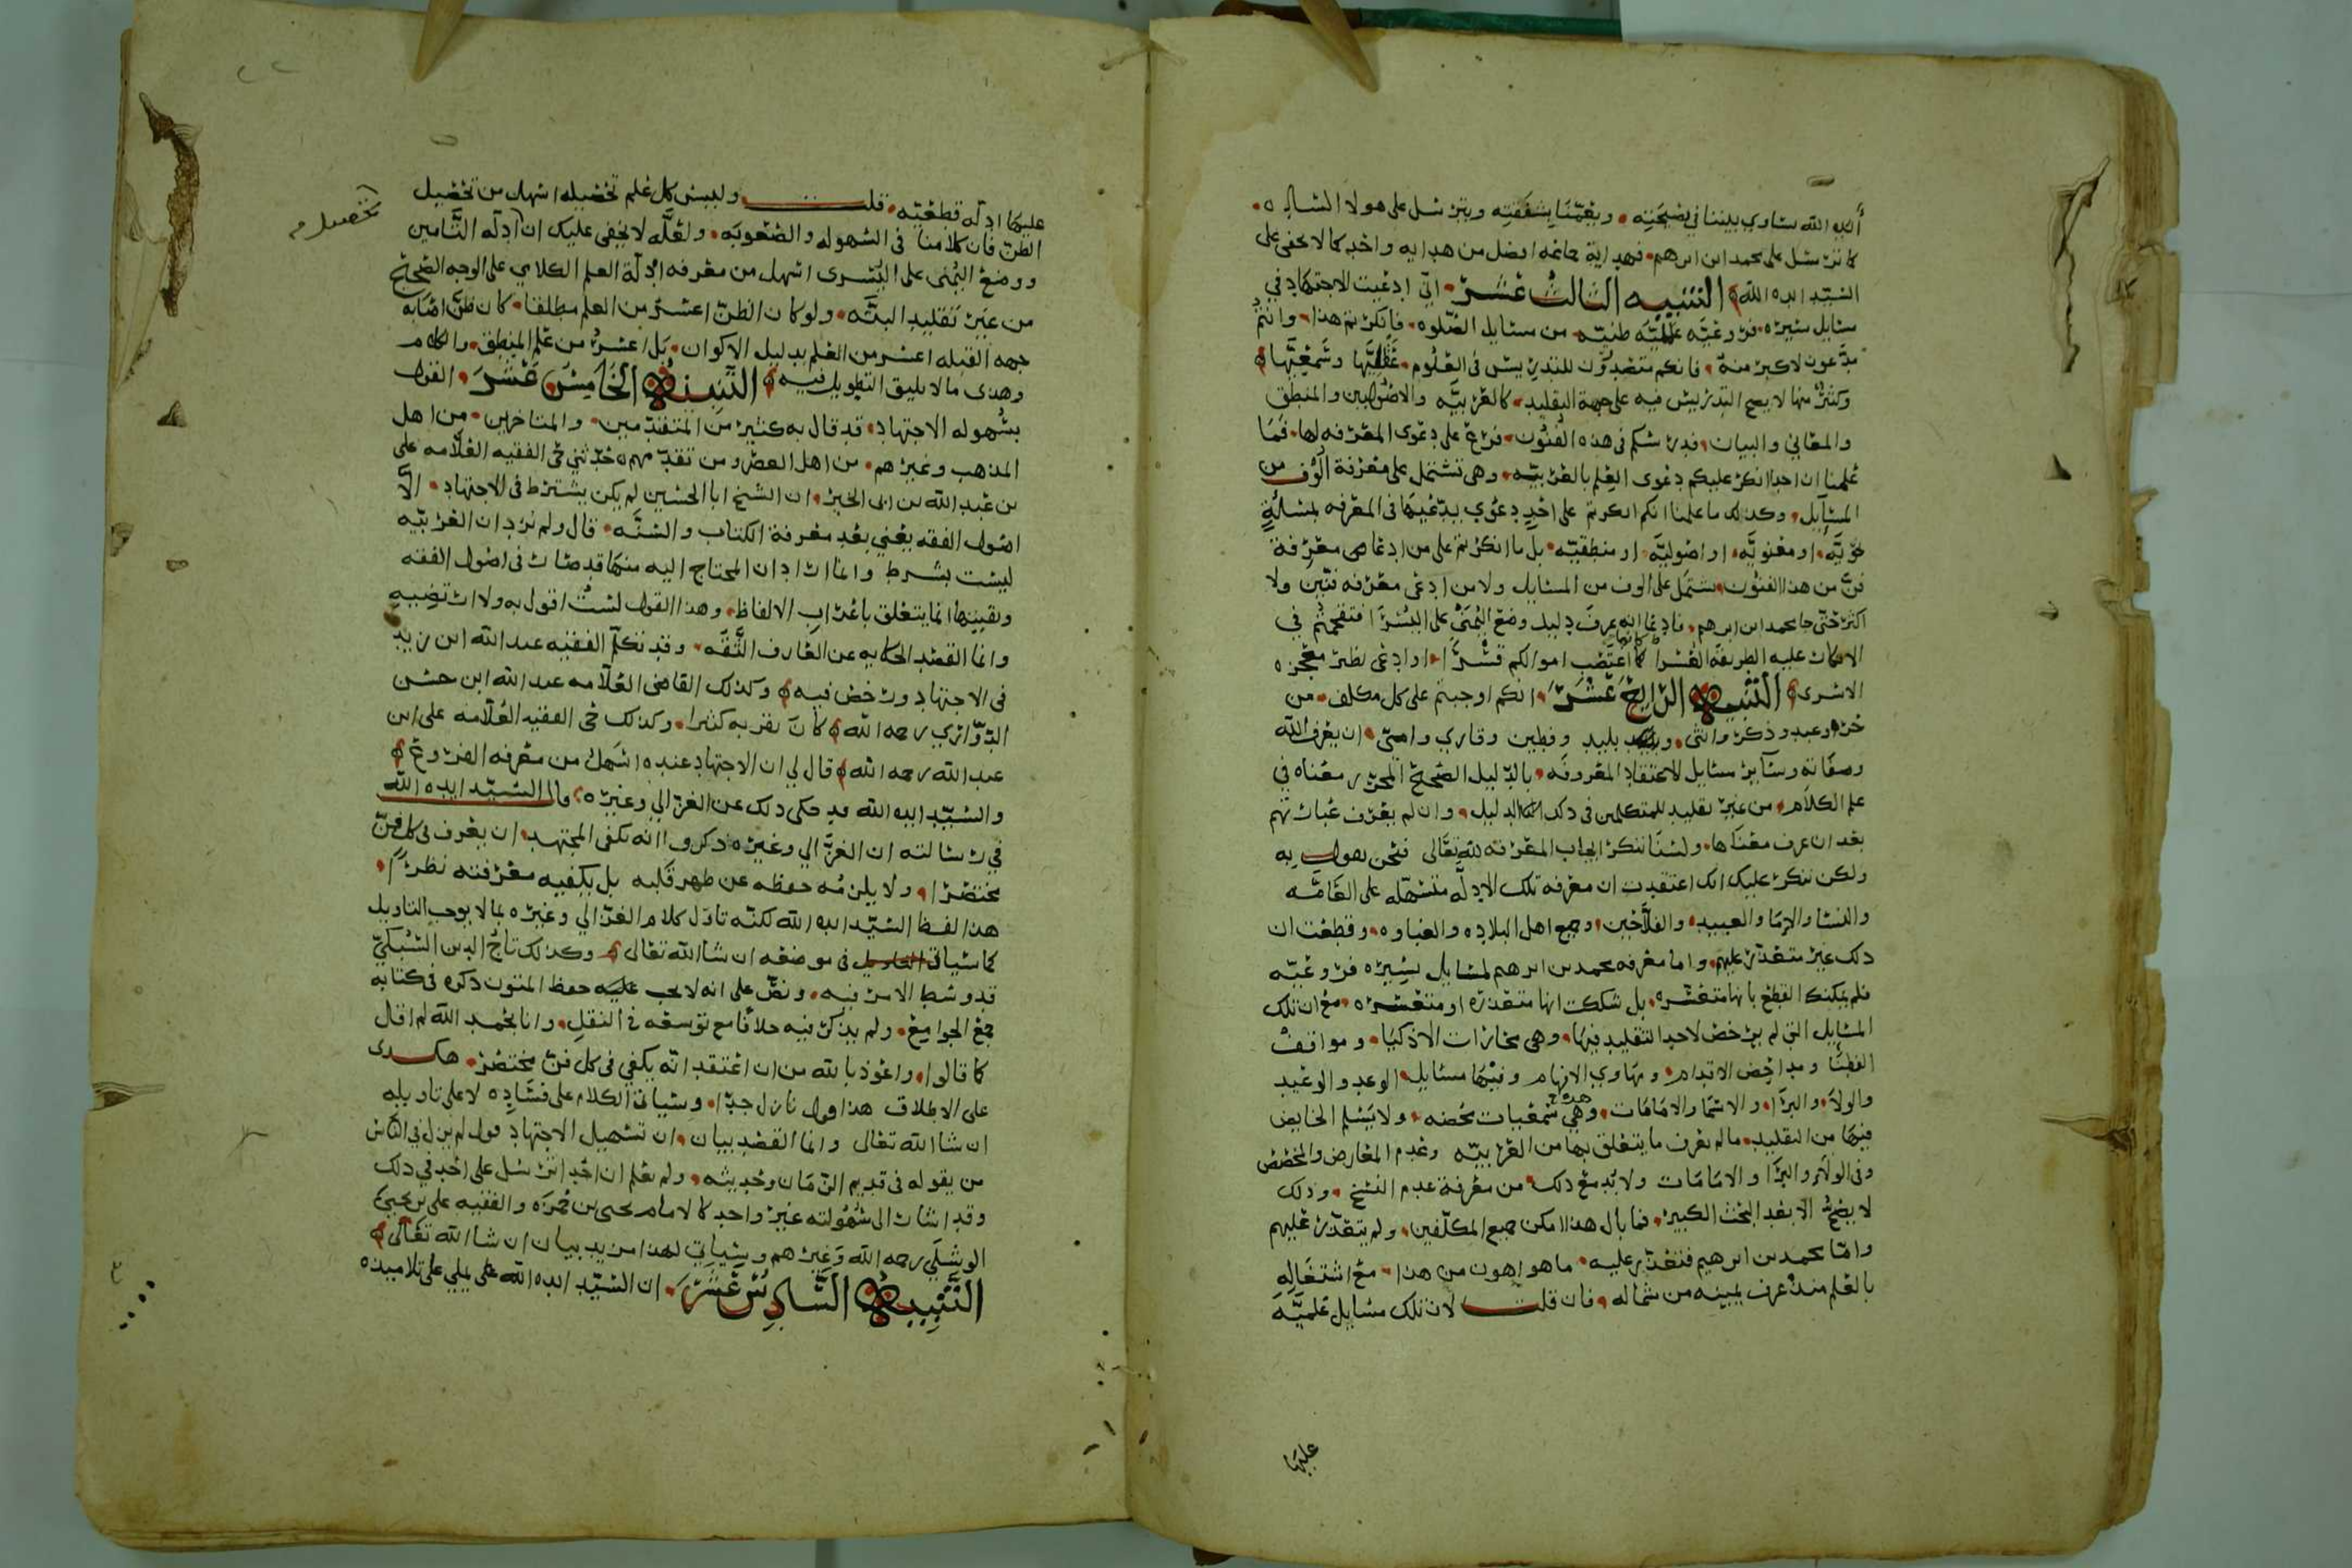 أيده الله يساوي بيننا في نصيحته ويعمنا بشفقته ويترسل على هولا الساده
كما ترسل على محمد ابن ابرهم فهداية جماعه افضل من هدايه واحد كما لا يخفى على
السيد ايده الله التنبيه الثالث عشر اني ادعيت الاجتهاد في
مسايل يسيره فروعيه عمليه ظنيه من مسايل الصلوه فانكرتم هذا وانتم
مدعون لاكبر منه فانكم متصدرون للتدريس في العلوم عقليها وسمعيها
وكثير منها لا يصح التدريس فيه على جهة التقليد كالعربيه والاصولين والمنطق
والمعاني والبيان فتدريسكم في هذه الفنون فرع على دعوى المعرفه لها فما
علمنا ان احدا انكر عليكم دعوى العلم بالعربيه وهي تشتمل على معرفة الوف من
المسايل وكذلك ما علمنا انكم انكرتم على احد دعوى يدعيها في المعرفه لمسئلة
نحويه او معنويه او اصوليه او منطقيه بل ما انكرتم على من ادعا معرفة
فن من هذا الفنون يشتمل على الوف من المسايل ولا من ادعى معرفه فنين ولا
اكثر حتى جا محمد ابن ابرهم فادعا انه عرف دليل وضع اليمنى على اليسرا فتقحمتم في
الانكار عليه الطريقه العسرا كانما اغتصب اموالكم قسرا او ادعى نظير معجزه
الاسرى التنبيه الرابع عشر انكم اوجبتم على كل مكلف من
حر وعبد وذكر وانثى وبليد وفطين وقاري وامي ان يعرف الله
وصفاته وسائر مسايل الاعتقاد المعروفه بالدليل الصحيح المحرر معناه في
علم الكلام من غير تقليد للمتكلمين في ذلك الدليل وان لم يعرف عباراتهم
بعد ان عرف معناها ولسنا ننكر ايجاب المعرفه لله تعالى فنحن نقول به
ولكن ننكر عليك انك اعتقدت ان معرفه تلك الادله متسهله على العامه
والنسا والاما والعبيد والفلاحين وجميع اهل البلاده والغباوه وقطعت ان
ذلك غير متعذر عليهم واما معرفه محمد بن ابرهم لمسايل يسيره فروعيه
فلم يمكنك القطع بانها متعسره بل شككت انها متعذره او متعسره مع ان تلك
المسايل التي لم يرخص لاحد التقليد فيها وهي محارات الاذكيا ومواقف
الفطنا ومداحض الاقدام ومهاوي الافهام وفيها مسايل الوعد والوعيد
والولا والبرا والاسما والامامات وهذه وهي سمعيات محضه ولا يسلم الخايض
فيها من التقليد ما لم يعرف ما يتعلق بها من العربيه وعدم المعارض والمخصص
وفي الولا والبرا والامامات ولابد مع ذلك من معرفة عدم النسخ وذلك
لا يصح الا بعد البحث الكبير فما بال هذا امكن جميع المكلفين ولم يتعذر عليهم
واما محمد بن ابرهيم فتعذر عليه ما هو اهون من هذا مع اشتغاله
بالعلم منذ عرف يمينه من شماله فان قلت لان تلك مسايل علميه
عليها
عليها ادله قطعيه قلت وليس كل علم تحصيله اسهل من تحصيل
تحصيل
الظن فان كلامنا في السهوله والصعوبه ولعله لا يخفى عليك ان ادله التامين
ووضع اليمنى على اليسرى اسهل من معرفه الادلة العلم الكلامي على الوجه الصحيح
من غير تقليد البته ولو كان الظن اعسر من العلم مطلقا كان ظن اصابه
جهه القبله اعسر من العلم بدليل الاكوان بل اعسر من علم المنطق والكلام
وهذى مالا يليق التطويل فيه التنبيه الخامس عشر القول
بسهوله الاجتهاد قد قال به كثير من المتقدمين والمتاخرين من اهل
المذهب وغيرهم من اهل العصر ومن تقدمهم حدثني حي الفقيه العلامه على
بن عبد الله بن ابي الخير ان الشيخ ابا الحسين لم يكن يشترط في الاجتهاد الا
اصول الفقه يعني بعد معرفة الكتاب والسنه قال ولم يرد ان العربيه
ليست بشرط وانما اراد ان المحتاج اليه منها قد صار في اصول الفقه
وبقيتها انما يتعلق باعراب الالفاظ وهذا القول لست اقول به ولا ارتضيه
وانما القصد الحكايه عن العارف الثقه وقد تكلم الفقيه عبد الله ابن زيد
في الاجتهاد ورخص فيه وكذلك القاضي العلامه عبد الله ابن حسن
الدواري رحمه الله كان يقربه كثيرا وكذلك حي الفقيه العلامه على ابن
عبد الله رحمه الله قال لي ان الاجتهاد عنده اسهل من معرفه الفروع
والسيد ايده الله قد حكى ذلك عن الغزالي وغيره قال السيد ايده الله
في رسالته ان الغزالي وغيره ذكروا انه يكفى المجتهد ان يعرف في كل فن
مختصرا ولا يلزمه حفظه عن ظهر قلبه بل يكفيه معرفته نظرا
هذا لفظ السيد ايده الله لكنه تاول كلام الغزالي وغيره بما لا يوجب التاويل
كما سياتى في موضعه ان شا الله تعالى وكذلك تاج الدين السبكي
قد وسط الامر فيه ونص على انه لا يجب عليه حفظ المتون ذكره في كتابه
جمع الجوامع ولم يذكر فيه خلافا مع توسعه في النقل وانا بحمد الله لم اقل
كما قالوا واعوذ بالله من ان اعتقد انه يكفي في كل فن مختصر هكذى
على الاطلاق هذا قول نازل جدا وسياتى الكلام على فساده لا على تاويله
ان شا الله تعالى وانما القصد بيان ان تسهيل الاجتهاد قول لم يزل في الناس
من يقوله في قديم الزمان وحديثه ولم نعلم ان احدا ترسل على احد في ذلك
وقد اشار الى سهولته غير واحد كالامام يحيى بن حمزه والفقيه على بن يحيى
الوشلي رحمه الله وغيرهم وسياتي لهذا مزيد بيان ان شا الله تعالى
التنبيه السادس عشر ان السيد ايده الله على يملي على تلاميذه